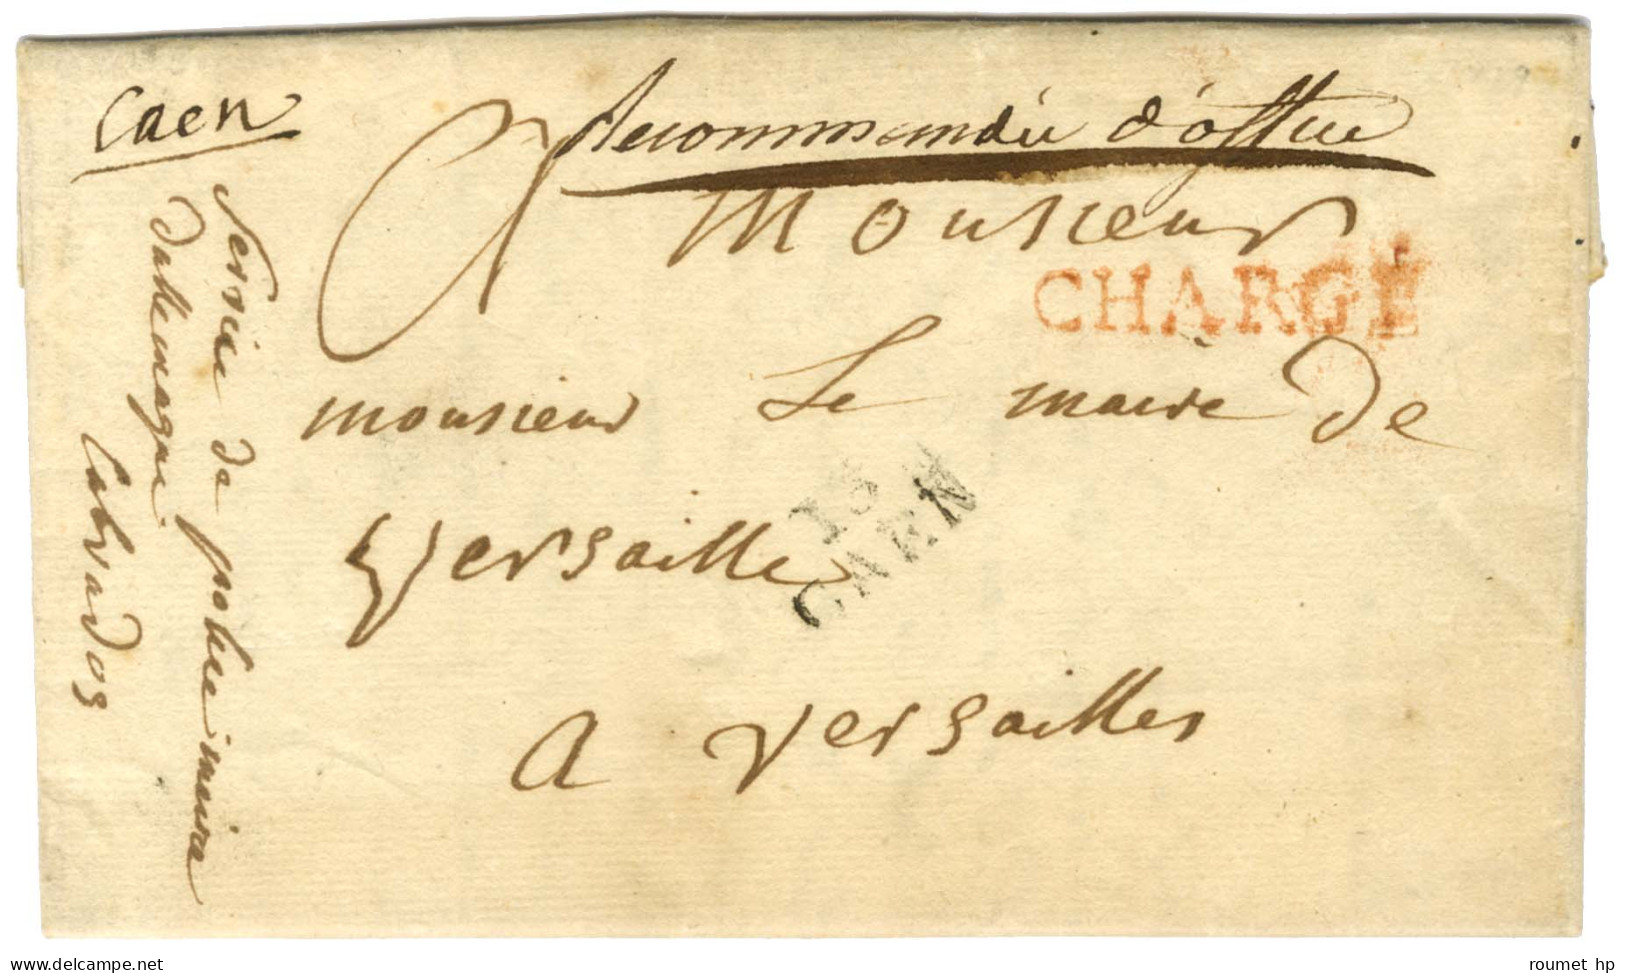 Caen
Recommandée d'office
Monsieur
CHARGÉ
monsieur Le maire de
versailles
13
CAEN
a versailles
Service de police maire
dallemagne
Calvados
www.delcampe.net
roumet hp